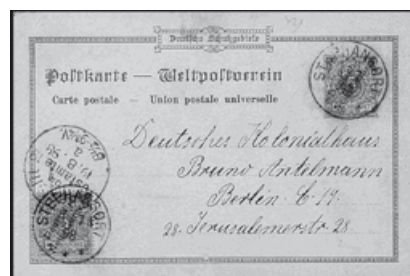 Deutsche Schutzgebiete
Postkarte — Weltpostverein
Carte postale – Union postale universelle
Deutsches Kolonialhaus
Bruno Antelmann
Berlin C. 19.
28. Jerusalemerstr. 28.
STEPHANSORT
STEPHANSORT